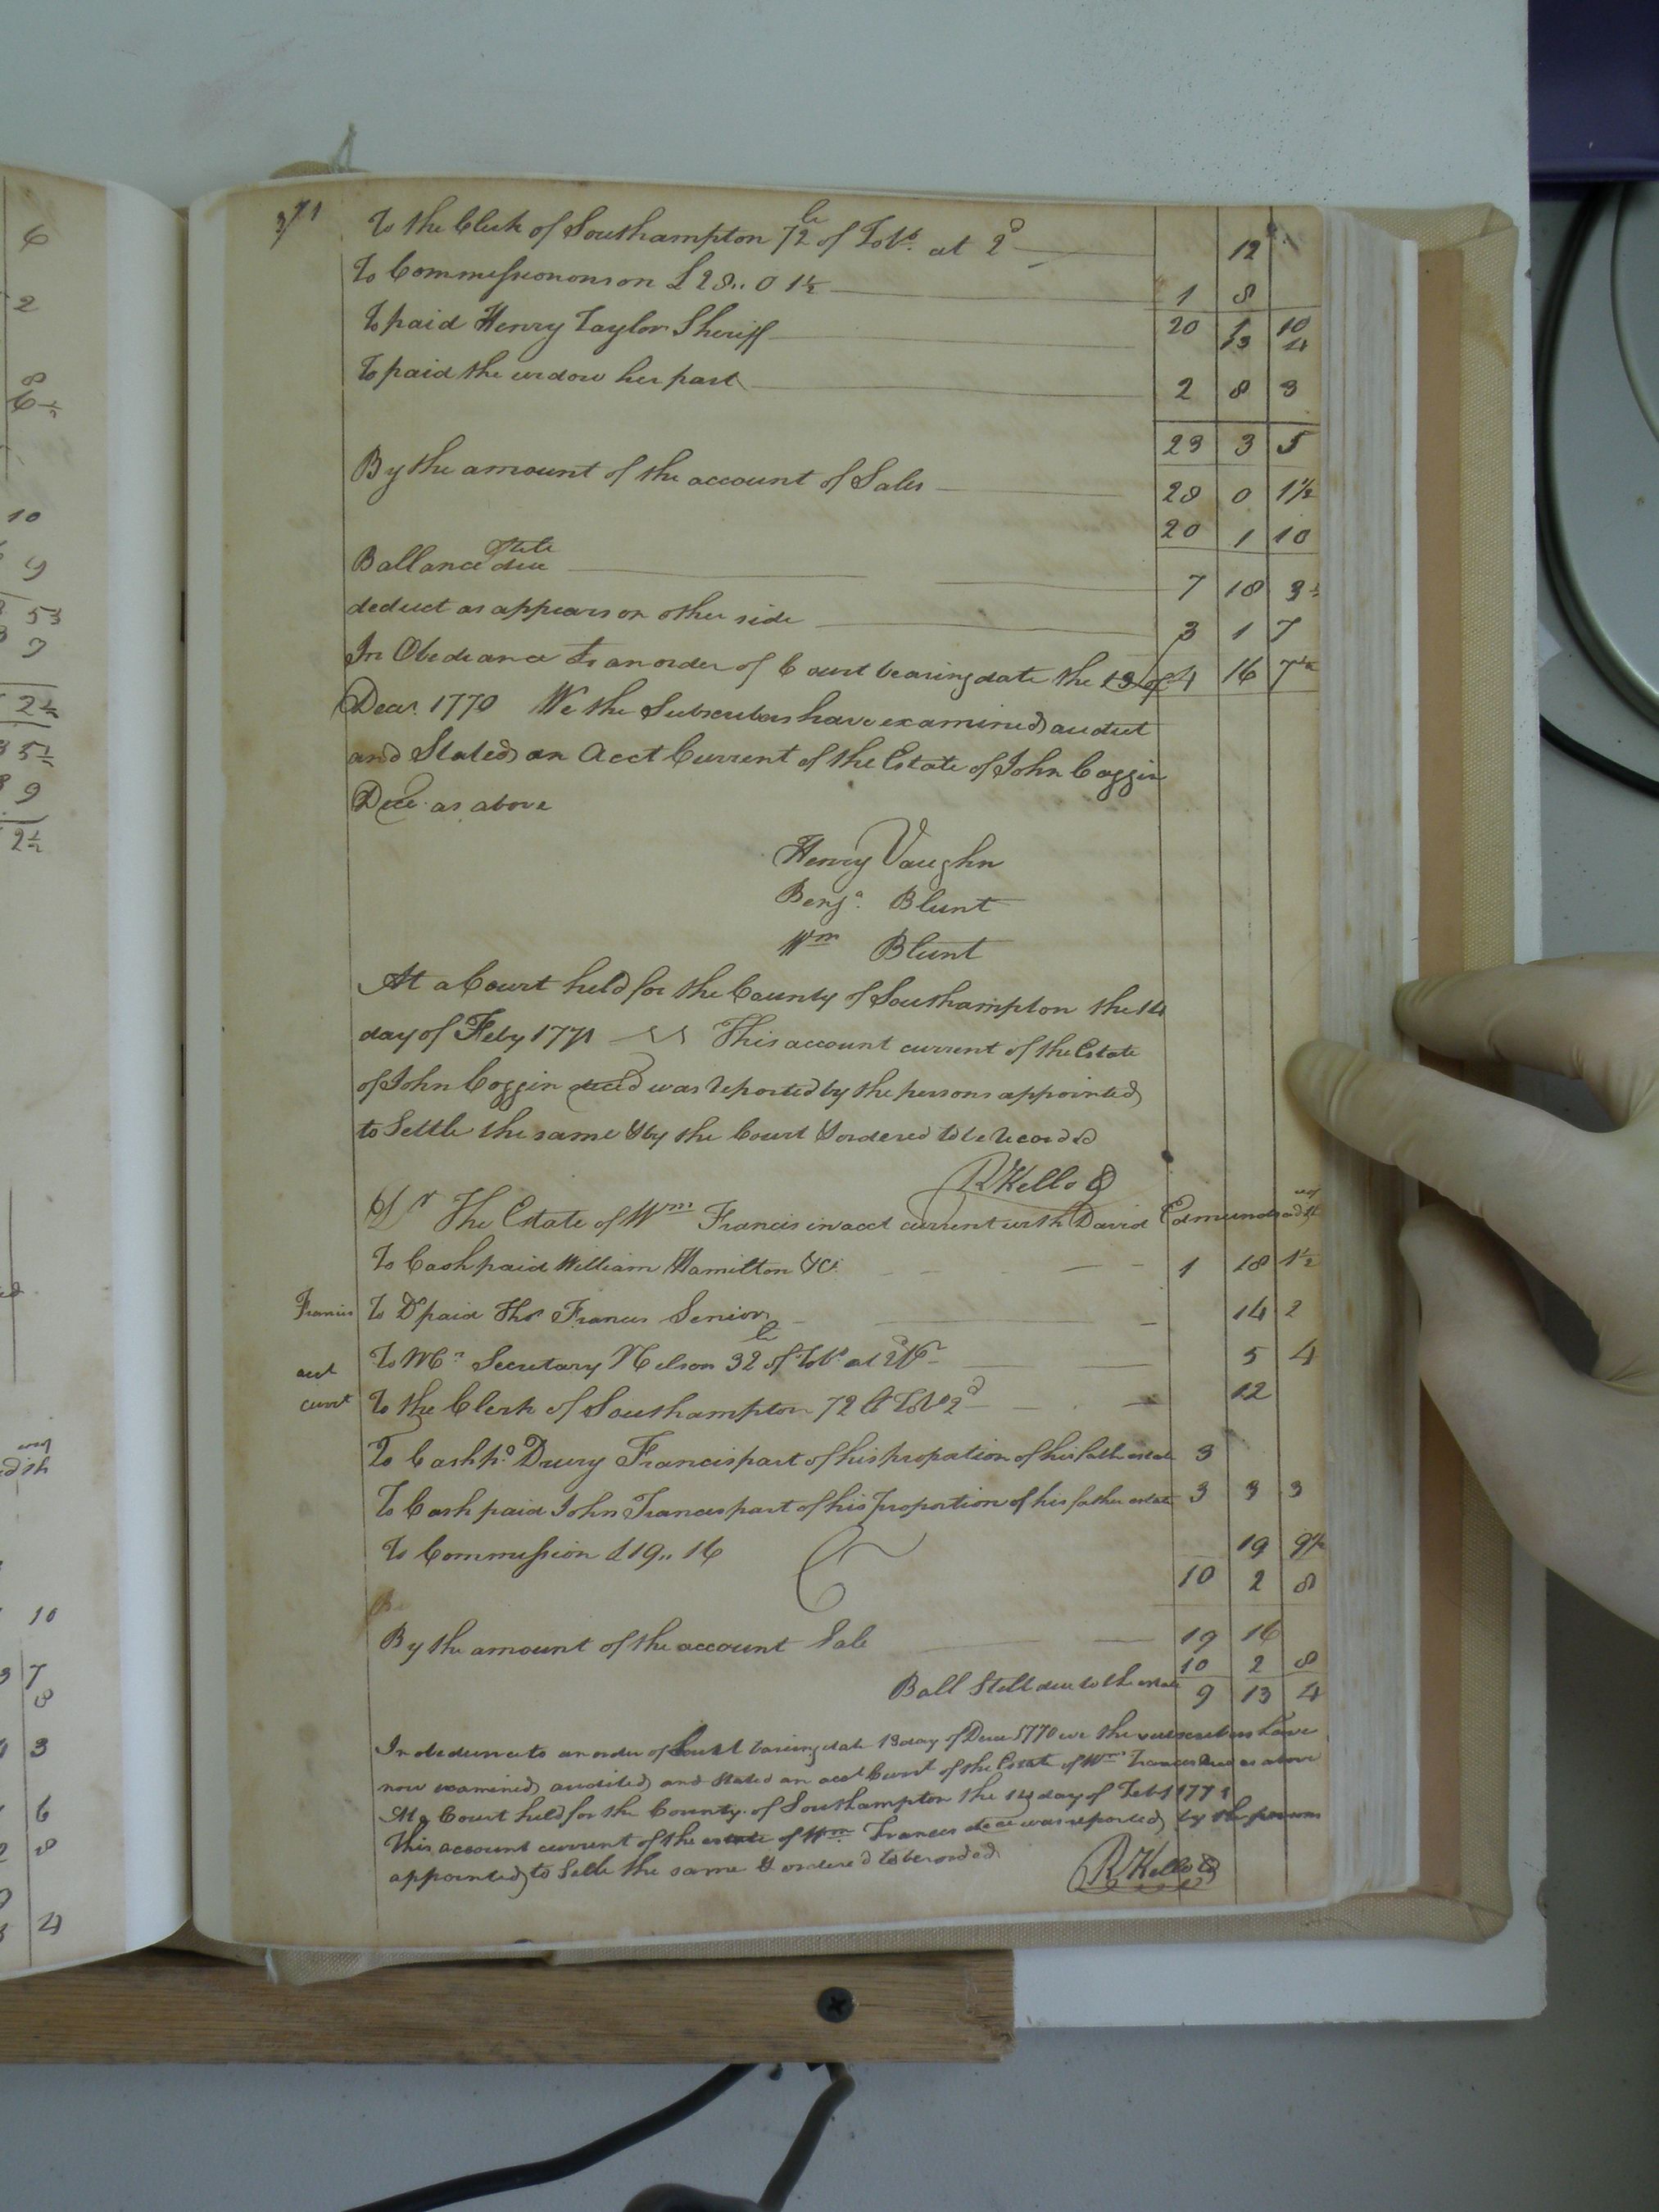 371
To the Clerk of Southampton 72 lb of Tobo. at 2d 12
To Commissionons on £28,, 0 1½ 1 8
20 1 10
To paid Henry Taylor Sheriff 13 4
To paid the widow her part 2 8 3
23 3 5
By the amount of the account of Sales 28 0 1½
20 1 10
Ballance still due 7 18 3½
deduct as appears on other side 3 1 7
In Obedeance to an order of Court bearing date the 13 of 4 16 7½
Decr. 1770 We the Subscribers have examined audut
and Stated an Acct Current of the Estate of John Coggin
Dece. as above
Henry Vaughn
Benja. Blunt
Wm Blunt
At a Court held for the County of Southampton the 14
day of Feby 1771 This account current of the Estate
of John Coggin deced was reported by the persons appointed
to Settle the same & by the Court & ordered to be recorded
R Kello
Dr The Estate of Wm Francis in acct current with David Edmunds
To Cash paid William Hamilton &c. 1 18 1½
Francis
acct
currt
To Do paid Thos Francis Senior 14 2
To Mr. Secretary Nelson 32 lb of Tobo at 2d 5 4
To the Clerk of Southampton 72 lb Tobo 2d 12
To Cash pd. Drury Francis part of his propotion of his fath estate 3
To Cash paid John Francis part of his Proportion of his father estate 3 3 3
To Commission £19,, 16 19 9½
10 2 8
By the amount of the account Sale 19 16
10 2 8
Ball Still due to the estate 9 13 4
In obedience to an order of Court baring date 13 day of Decr 1770 we the subscribers have
now examined audited and stated an acct Currt of the Estate of Wm Francis Dece as above
At a Court held for the County of Southampton the 14 day of Feby 1771
This account current of the estate of Wm Francis dece was reported by the persons
appointed to Settle the same & ordered to be recorded
R Kello